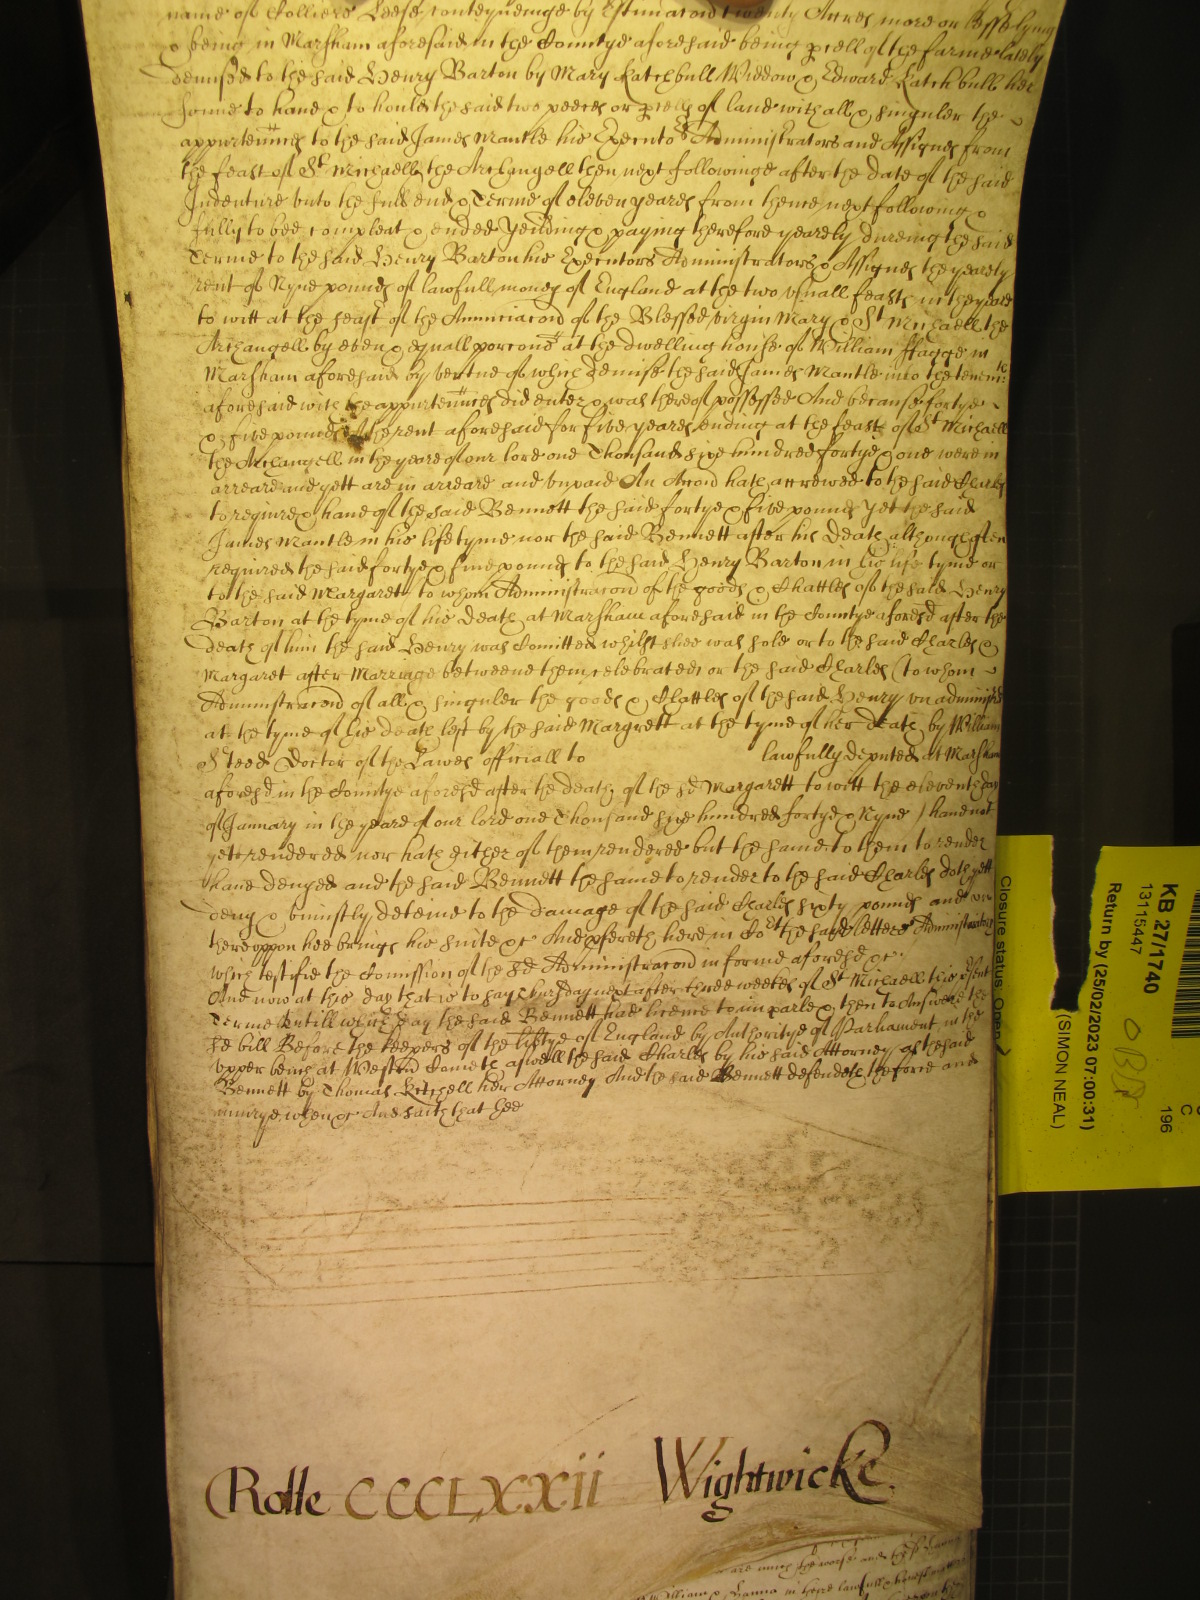 name of Colliers Leese conteyneinge by Estimacon twenty Acres more or lesse lying
& being in Marsham aforesaid in the Countye aforesaid being pcell of the farme lately
demised to the said Henry Barton by Mary Katchbull Widdow & Edward Katchbull her
sonne to haue & to hould the said two peeces or pcells of land with all & singuler the
appurtennces to the said James Mantle his Executors Administrators and Assignes from
the feast of St Michaell the Archangell then next followinge after the date of the said
Indenture vnto the full end & Terme of eleven yeares from thence next following &
fully to bee compleat & ended Yeilding & paying therefore yearely dureing the said
Terme to the said Henry Barton his Executors Administrators & Assignes the yearely
rent of Nyne pounds of lawfull money of England at the two vsuall feasts in the yeare
to witt at the feast of the Annunciacon of the Blessed virgin Mary & St Michaell the
Archangell by even & equall porcons at the dwelling house of William fflagge in
Marsham aforesaid by vertue of which demise the said James Mantle into the tenemts
aforesaid with the appurtennces did enter & was thereof possessed And because fortye
& five pounds of the rent aforesaid for five yeares ending at the feast of St Michaell
the Archangell in the yeare of our lord one Thousand six hundred fortye & one were in
arreare and yett are in arreare and vnpaid An Accon hath accrewed to the said Charles
to require & haue of the said Bennett the said fortye & five pounds Yet the said
James Mantle in his life tyme nor the said Bennett after his death although often
required the said fortye & five pounds to the said Henry Barton in his life tyme or
to the said Margarett to whom Administracon of the goods & Chattles of the said Henry
Barton at the tyme of his death at Marsham aforesaid in the Countye aforesd after the
death of him the said Henry was Comitted whilst shee was sole or to the said Charles &
Margaret after Marriage betweene them celebrated or the said Charles (to whom
Administracon of all & singuler the goods & Chattles of the said Henry vn administred
at the tyme of his death left by the said Margrett at the tyme of her death by William
Steed Doctor of the Lawes officiall to lawfully deputed at Marsham
aforesd in the Countye aforesd after the death of the sd Margarett to witt the eleventh day
of January in the yeare of our lord one Thousand six hundred fortye & Nyne) haue not
yett rendered nor hath either of them rendered but the same to them to render
haue denyed and the said Bennett the same to render to the said Charles doth yett
deny & uniustly deteine to the damage of the said Charles sixty pounds and
thereuppon hee brings his suite &c And pfereth here in Cort the said letters Administratory
which testifie the Comission of the sd Administracon in forme aforesd &c
And now at this day that is to say Thursday next after three weekes of St Michaell this psent
Terme Vntill which day the said Bennett had licence to imparle & then to Answere the
sd bill Before the keepers of the libtye of England by Authoritye of Parliament in the
vpper bench at Westm Cometh aswell the said Charles by his said Attorney as the said
Bennett by Thomas Kitchell her Attorney And the said Bennett defendeth the force and
iniurye when &c And saith that hee
Rotle CCCLXXii Wightwicke
are much the worse and the
William & Hanna in there lawfull
Closure status: Open
KB 27/1740
13115447
Return by (25/02/2023 07:00:31)
(SIMON NEAL)
C
196